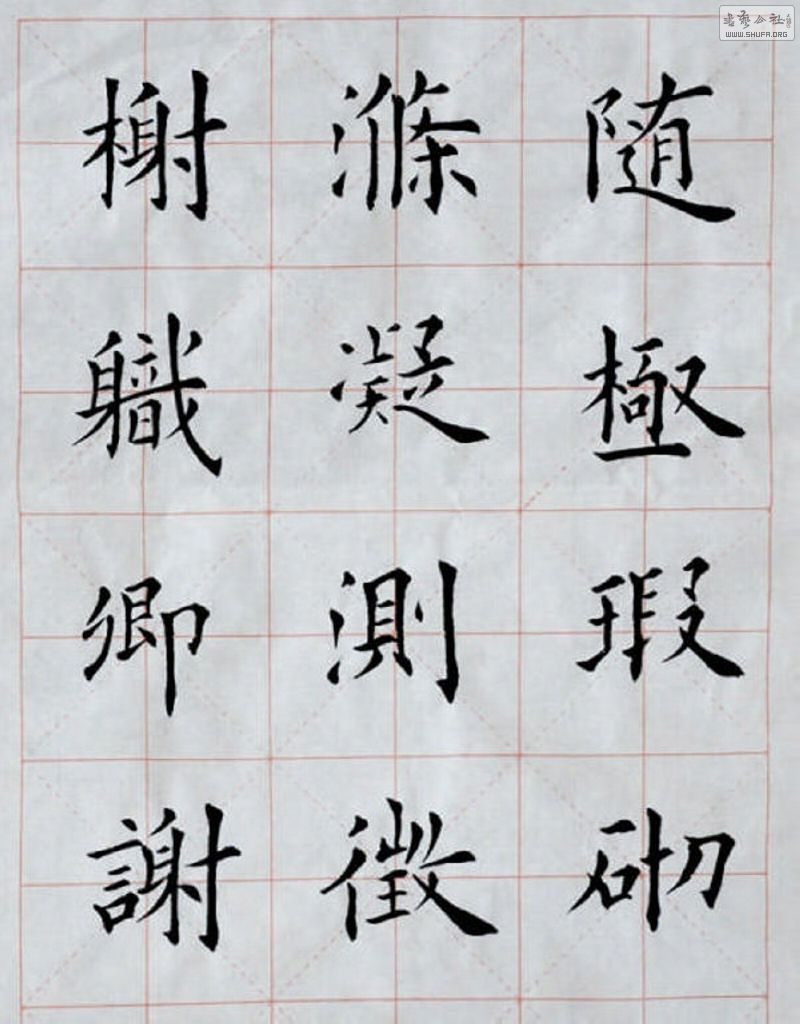 随極瑕砌
滌凝測徴
榭軄卿謝
書藝公社
WWW.SHUFA.ORG